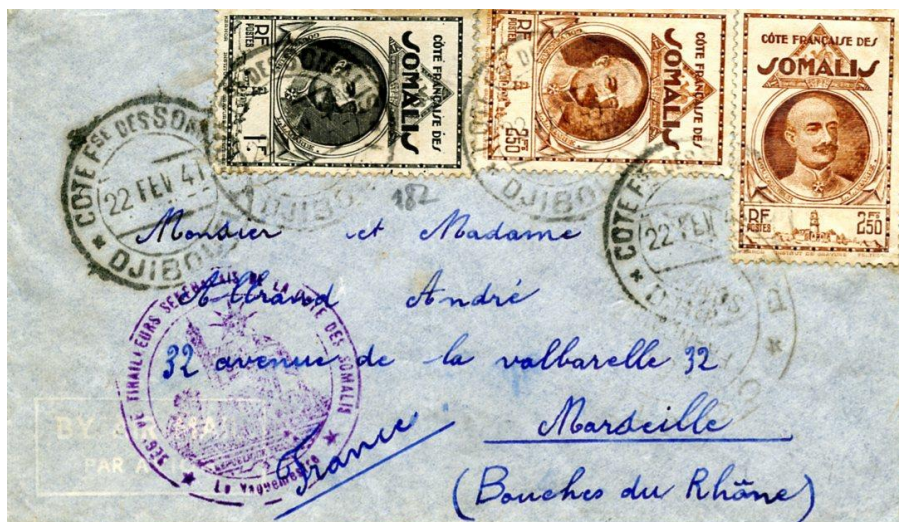 RF
POSTES
1F
CÔTE FRANÇAISE DES
SOMALIS
RF
POSTES
2F50
CÔTE FRANÇAISE DES
SOMALIS
CÔTE FRANÇAISE DES
SOMALIS
RF
POSTES
2F50
* COTE Fse DES SOM
22 FEV 41
DJIBO
DJIBO
DJIBO
COTE F
22 FEV 4
182
Monsieur et Madame
Allirand André
32 avenue de la valbarelle 32
Marseille
(Bouches du Rhône)
France
TIRAILLEURS SENEGALAIS DE LA COTE DES SOMALIS
Le Vaguemestre
BY AIR MAIL
PAR AVION